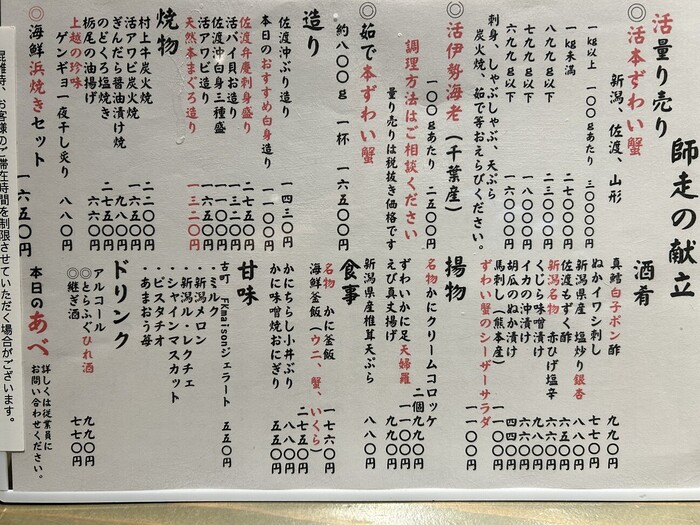 師走の献立
活量り売り
◎活本ずわい蟹
新潟、佐渡、山形
1kg以上 一〇〇gあたり 三〇〇〇円
1kg未満 二七〇〇円
八九九g以下
七九九g以下 一八〇〇円
六九九g以下 一六〇〇円
刺身、しゃぶしゃぶ、天ぷら
炭火焼、茹で等おえらびください。
◎活伊勢海老（千葉産）
一〇〇gあたり 二五〇〇円
調理方法はご相談ください
量り売りは税抜き価格です
◎茹で本ずわい蟹
約八〇〇g 一杯 一六五〇〇円
造り
佐渡沖ぶり造り 一四三〇円
本日のおすすめ白身造り 一一〇〇円
佐渡弁慶刺身盛り 二七五〇円
活バイ貝お造り 一一〇〇円
佐渡沖白身三種盛 一六五〇円
活アワビ造り 二二〇〇円
天然本まぐろ造り 一三二〇円
焼物
村上牛炭火焼 二二〇〇円
活アワビ炭火焼 二二〇〇円
ぎんだら醤油漬け焼 一六五〇円
のどくろ塩焼き 九八〇円
栃尾の油揚げ 六六〇円
上越の珍味
ゲンギョ一夜干し炙り 八八〇円
◎海鮮浜焼きセット 一六五〇円
酒肴
真鱈白子ポン酢 九九〇円
ぬかイワシ刺し 七七〇円
新潟県産 塩炒り銀杏 八八〇円
佐渡もずく酢 六六〇円
新潟名物 赤ひげ塩辛 五五〇円
くじら味噌漬け 九八〇円
イカの沖漬け 六六〇円
胡瓜のぬか漬け 四四〇円
馬刺し（熊本産） 一一〇〇円
ずわい蟹のシーザーサラダ 一一〇〇円
揚物
名物かにクリームコロッケ
二個 九九〇円
ずわいかに足天婦羅 一一〇〇円
えび真丈揚げ 九九〇円
新潟県産椎茸天ぷら 八八〇円
食事
名物 かに釜飯 一七六〇円
海鮮釜飯（ウニ、蟹、いくら） 二七五〇円
かにちらし小丼ぶり 八八〇円
かに味噌焼おにぎり 五五〇円
甘味
古町 FKmaisonジェラート 五五〇円
・ミルク
・新潟メロン
・新潟ル・レクチェ
・シャインマスカット
・ピスタチオ
・あまおう苺
ドリンク
アルコール
◎とらふぐひれ酒 九九〇円
◎継ぎ酒 七七〇円
本日のあべ
詳しくは従業員に
お問い合わせください。
混雑時、お客様のご滞在時間を制限させていただく場合がございます。